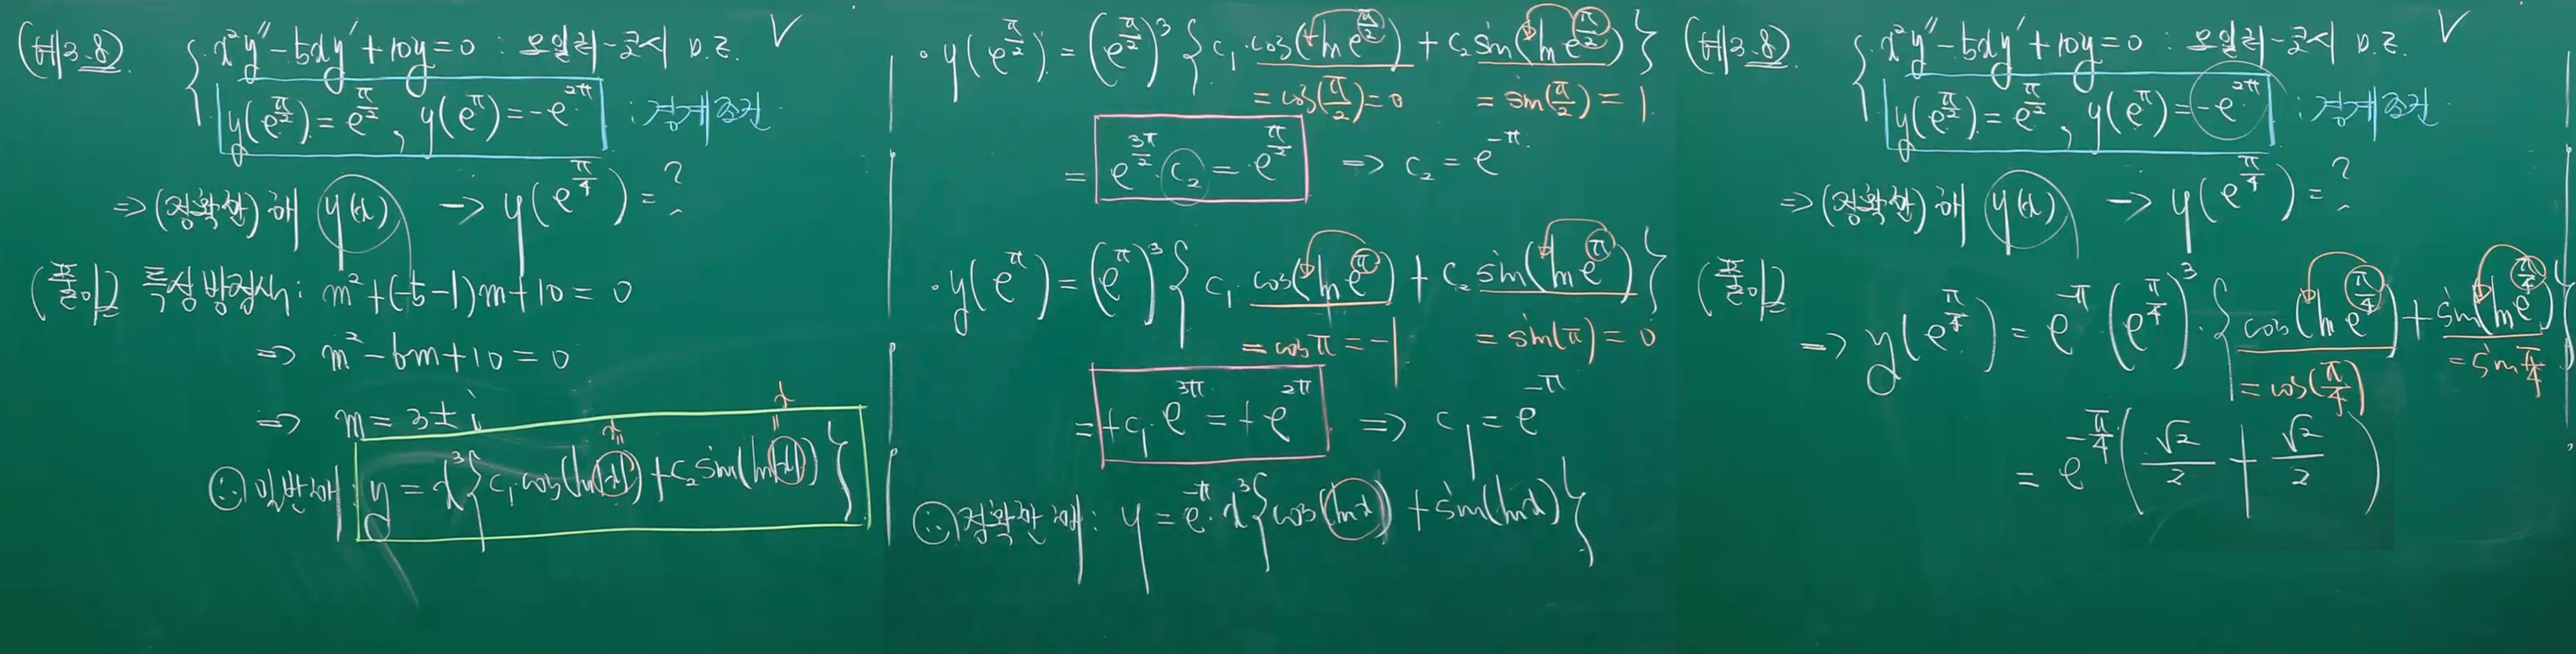 (예3.8) x²y″-5xy′+10y=0 : 오일러-코시 D.E. ✓
y(e^{π/2})=e^{π/2}, y(e^π)=-e^{2π} : 경계조건
⇒(정확한)해 y(x) → y(e^{π/4})=?
(풀이) 특성방정식: m²+(-5-1)m+10=0
⇒ m²-6m+10=0
⇒ m=3±i
∴ 일반해: y=x³{c₁cos(ln(x))+c₂sin(ln(x))}
• y(e^{π/2})=(e^{π/2})³{c₁·cos(ln e^{π/2})+c₂sin(ln e^{π/2})}
=cos(π/2)=0 =sin(π/2)=1
= e^{3π/2}·c₂=e^{π/2} ⇒ c₂=e^{-π}
• y(e^π)=(e^π)³{c₁cos(ln e^π)+c₂sin(ln e^π)}
=cosπ=-1 =sin(π)=0
=+c₁·e^{3π}=+e^{2π} ⇒ c₁=e^{-π}
∴ 정확한 해: y=e^{-π}·x³{cos(lnx)+sin(lnx)}
(예3.8) x²y″-5xy′+10y=0 : 오일러-코시 D.E. ✓
y(e^{π/2})=e^{π/2}, y(e^π)=-e^{2π} : 경계조건
⇒(정확한)해 y(x) → y(e^{π/4})=?
(풀이)
⇒ y(e^{π/4})=e^{-π}(e^{π/4})³·{cos(ln e^{π/4})+sin(ln e^{π/4})}
=cos(π/4) =sin π/4
= e^{-π/4}(√2/2+√2/2)